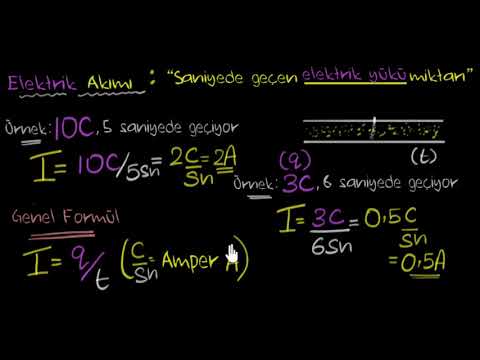 Elektrik Akımı : "Saniyede geçen elektrik yükü miktarı"
Örnek: 10C, 5 saniyede geçiyor
I = 10C/5sn = 2C/Sn = 2A
Genel Formül
I = q/t (C/Sn = Amper A)
(q) (t)
Örnek: 3C, 6 saniyede geçiyor
I = 3C/6Sn = 0,5C/Sn
= 0,5A